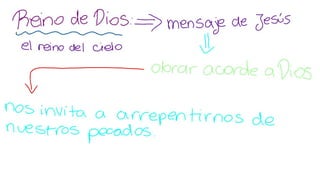 Reino de Dios: ⇒ mensaje de Jesús
el reino del cielo
obrar acorde a Dios
nos invita a arrepentirnos de
nuestros pecados.